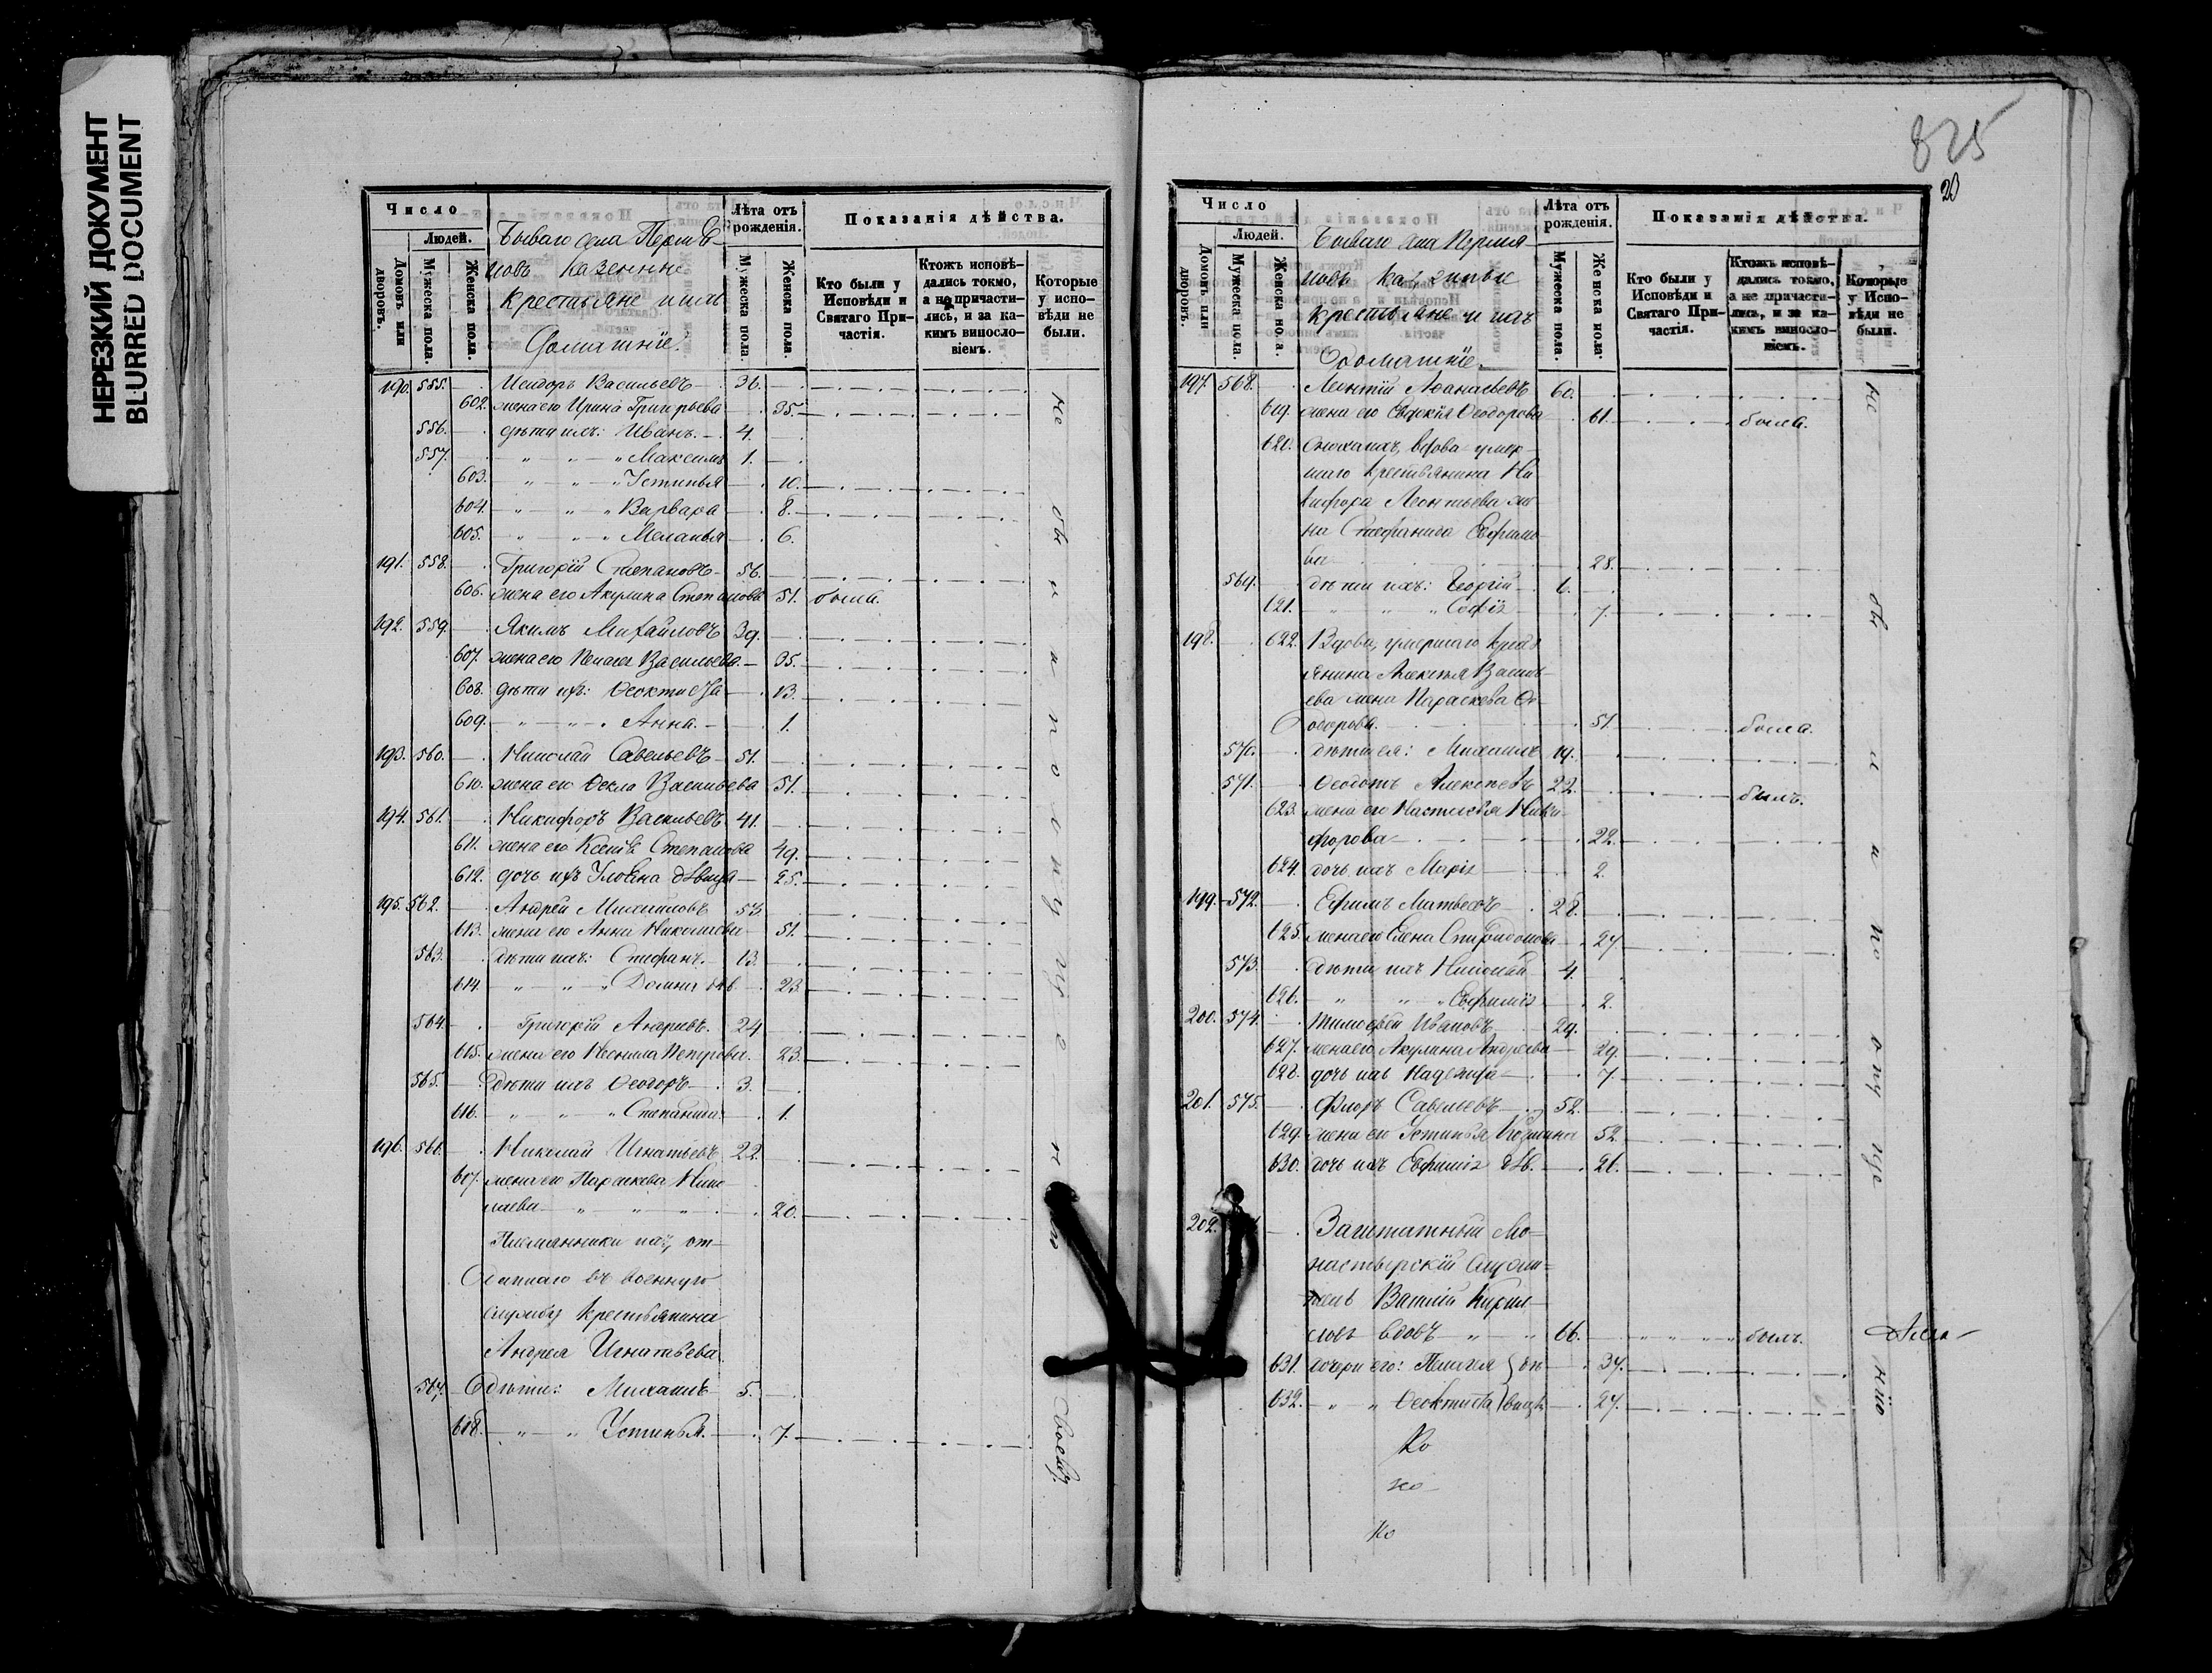 НЕРЕЗКИЙ ДОКУМЕНТ
BLURRED DOCUMENT
825
20
Число
Людей.
Домовъ или дворовъ.
Мужеска пола.
Женска пола.
Бываго села
казенные
крестьяне и ихъ
Домашніе.
Лѣта отъ рожденія.
Мужеска пола.
Женска пола.
Показанія дѣйства.
Кто были у Исповѣди и Святаго Причастія.
Ктожъ исповѣдались токмо, а не причастились, и за какимъ винословіемъ.
Которые у исповѣди не были.
190. 555. Исидоръ Васильевъ 36.
602. жена его Ирина Григорьева 35.
556. дѣти ихъ: Иванъ 4.
557. " " " Максимъ 1.
603. " " " Устинья 10.
604. " " " Варвара 8.
605. " " " Меланья 6.
191. 558. Григорій Степановъ 56.
606. жена его Акулина Степанова 51. была.
192. 559. Якимъ Михайловъ 39.
607. жена его Пелагея Васильева 35.
608. дѣти ихъ: Ѳеоктиста 13.
609. " " Анна 1.
193. 560. Николай Савельевъ 51.
610. жена его Ѳекла Васильева 51.
194. 561. Никифоръ Васильевъ 41.
611. жена его Ксенія Степанова 49.
612. дочь ихъ Ульяна дѣвица 25.
195. 562. Андрей Михайловъ 53.
613. жена его Анна Николаева 51.
563. дѣти ихъ: Стефанъ 13.
614. " " " Домна дѣв. 23.
564. Григорій Андреевъ 24.
615. жена его Неонила Петрова 23.
565. дѣти ихъ Ѳеодоръ 3.
616. " " " Степанида 1.
196. 566. Николай Игнатьевъ 22.
617. жена его Параскева Нико-
лаева " " " 20.
Племянники ихъ, от-
даннаго въ военную
службу крестьянина
Андрея Игнатьева
567. дѣти: Михаилъ 5.
618. " " Устинья 7.
не бы
своему.
Число
Людей.
Домовъ или дворовъ.
Мужеска пола.
Женска пола.
Бываго села
казенные
крестьяне и ихъ
Домашніе.
Лѣта отъ рожденія.
Мужеска пола.
Женска пола.
Показанія дѣйства.
Кто были у Исповѣди и Святаго Причастія.
Ктожъ исповѣдались токмо, а не причастились, и за какимъ винословіемъ.
Которые у Исповѣди не были.
197. 568. Леонтій Аѳанасьевъ 60.
619. жена его Евдокія Ѳеодорова 61. была.
620. Сноха ихъ, вдова умер-
шаго крестьянина Ни-
кифора Леонтьева же-
на Стефанида Ефимо-
ва 28.
569. дѣти ихъ: Георгій 6.
621. " " " Софія 7.
198. 622. Вдова, умершаго крест-
янина Алексѣя Василь-
ева жена Параскева Ѳе-
одорова. 51. была.
570. дѣти ея: Михаилъ 19.
571. Ѳеодотъ Алексѣевъ 22. былъ.
623. жена его Настасья Ники-
форова 22.
624. дочь ихъ Марія 2.
199. 572. Ефимъ Матвеевъ 28.
625. жена его Елена Спиридонова 27.
573. дѣти ихъ Николай 4.
626. " " " Евфимія 2.
200. 574. Тимофей Ивановъ 29.
627. жена его Акулина Андреева 29.
628. дочь ихъ Надежда 7.
201. 575. Флоръ Савельевъ 52.
629. жена его Устинья Козмина 52.
630. дочь ихъ Евфимія дѣв. 26.
202. Заштатный Мо-
настырскій служи-
тель Василій Кирил-
ловъ вдовъ " " 66. " " " былъ.
631. дочери его: Пелагея } дѣ- 37.
632. " " Ѳеоктиста } вицы 27.
не бы